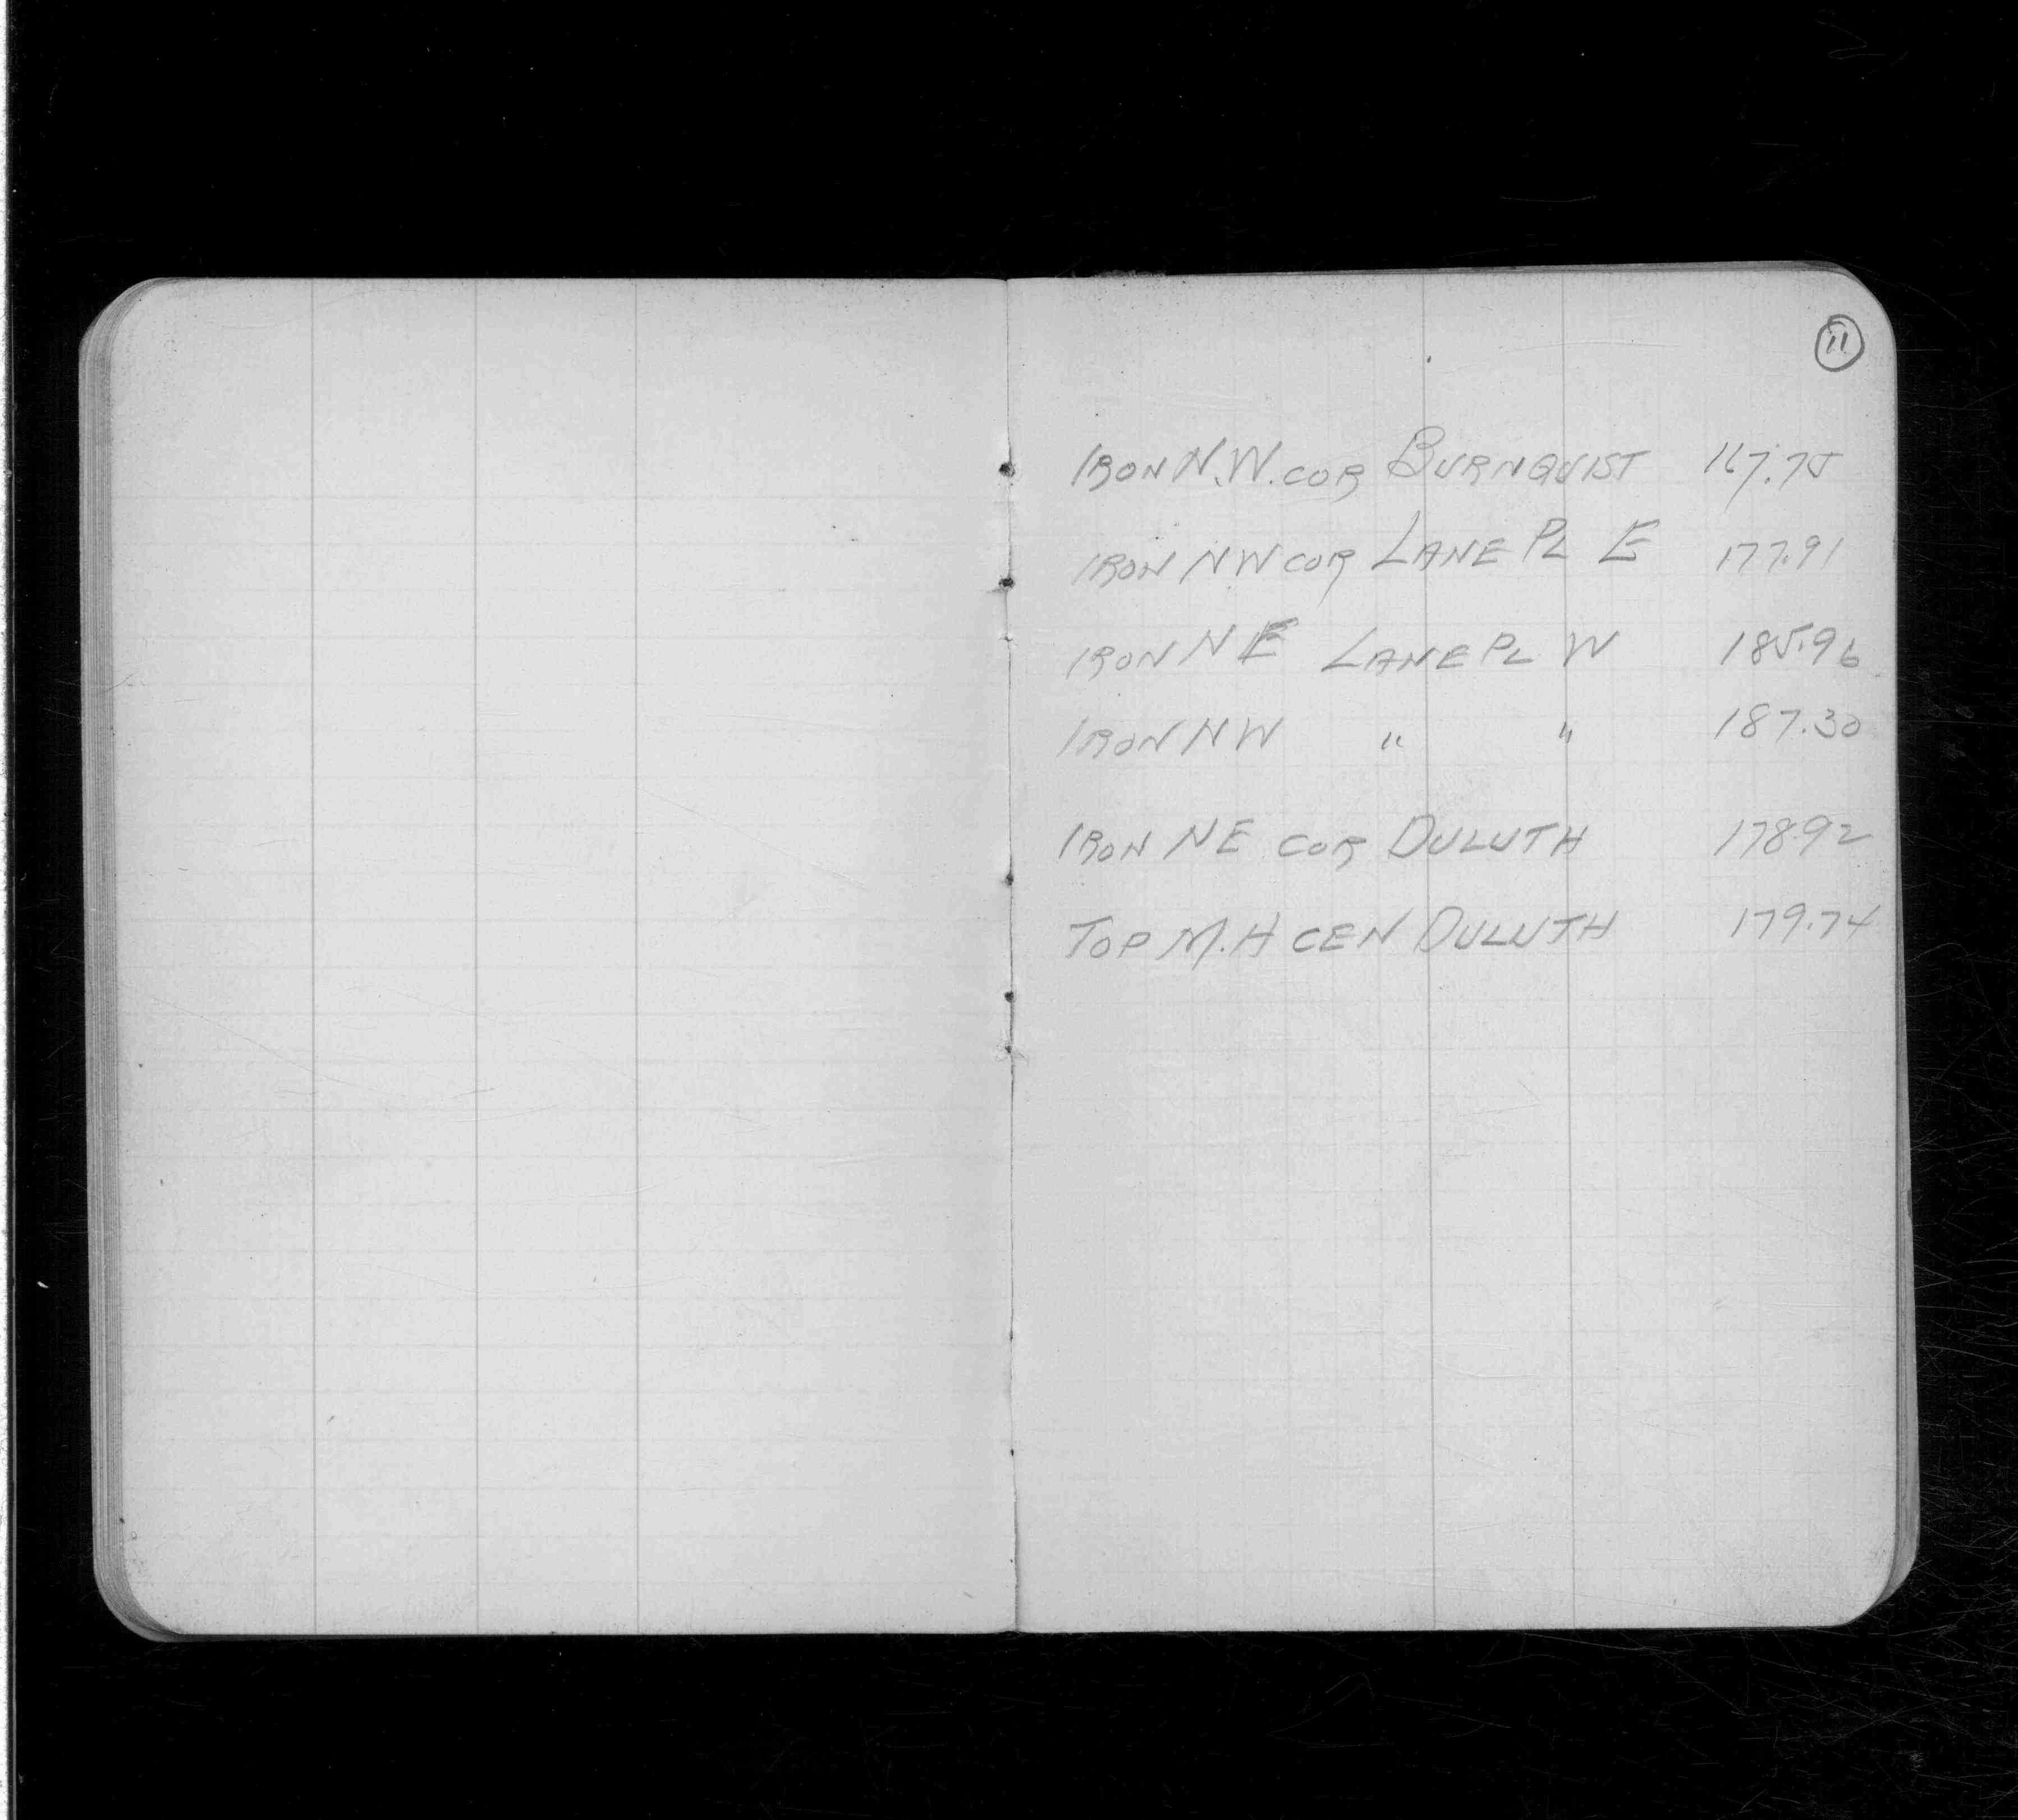 11
IRON N.W. COR BURNQUIST 167.75
IRON NW COR LANE PL E 177.91
IRON NE LANE PL W 185.96
IRON NW " " 187.30
IRON NE COR DULUTH 178.92
TOP M.H CEN DULUTH 179.74